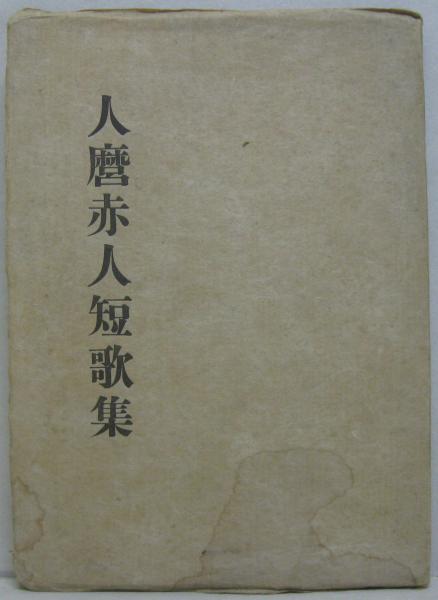 人麿赤人短歌集